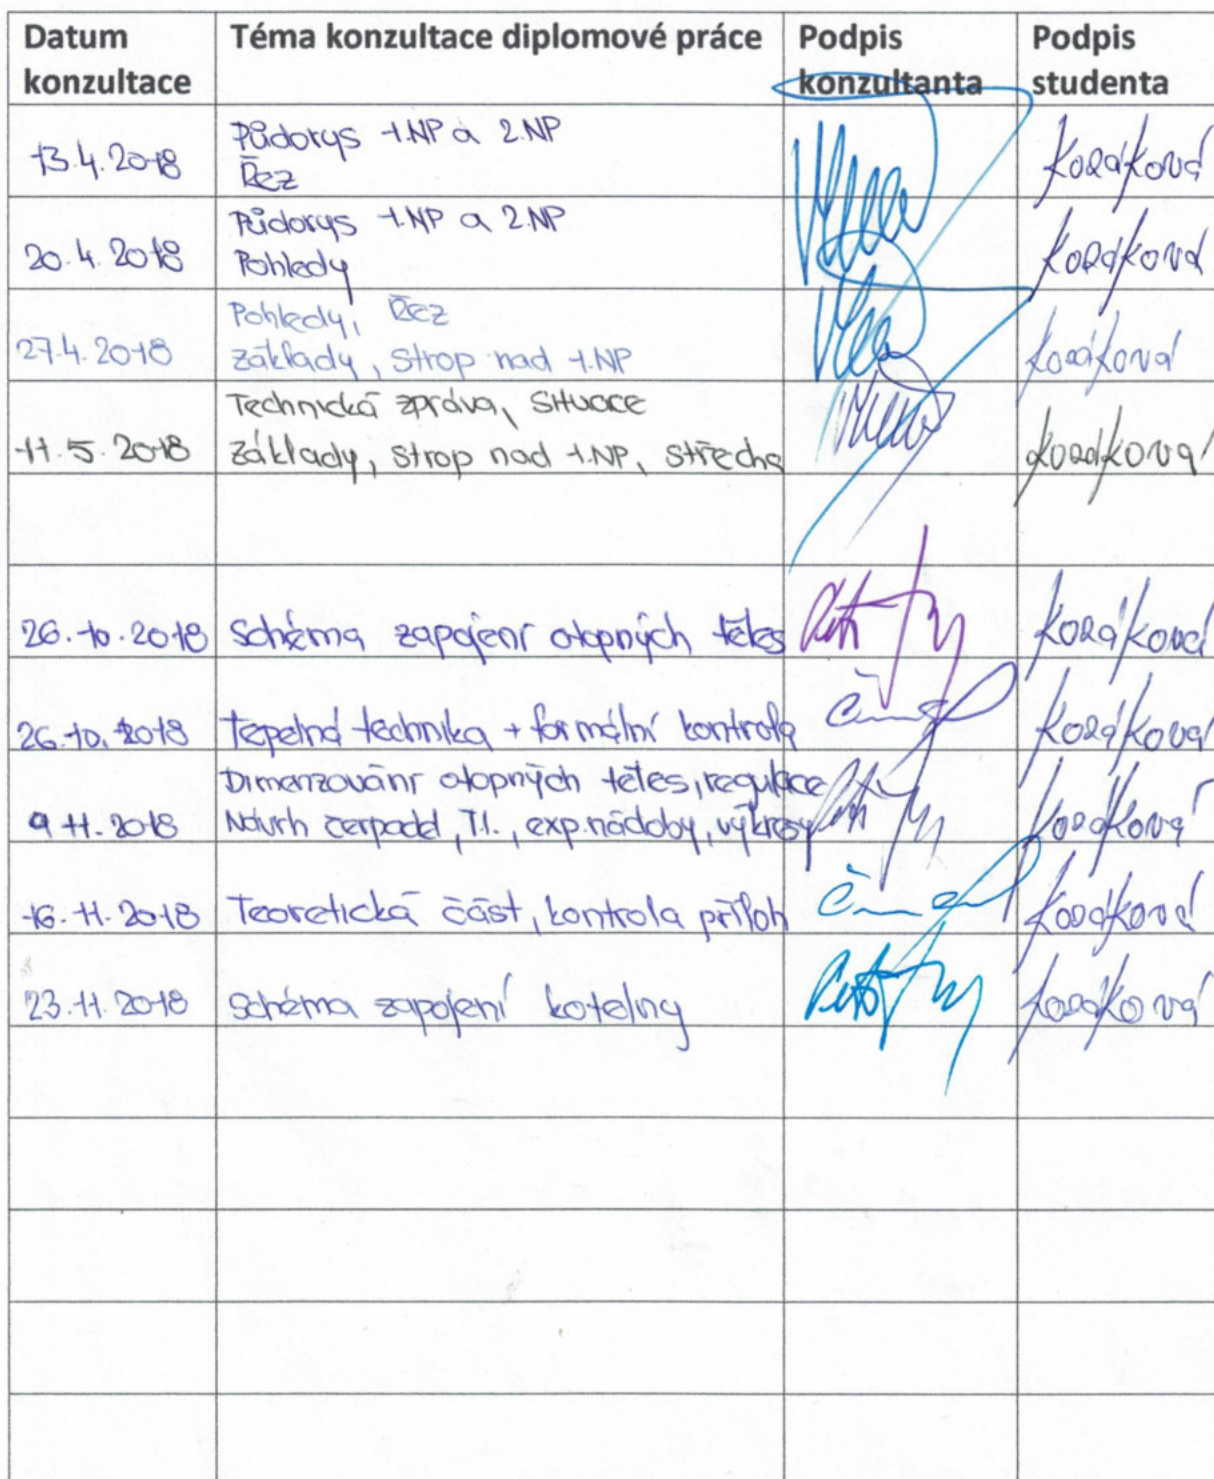 Datum konzultace Téma konzultace diplomové práce Podpis konzultanta Podpis studenta
Půdorys 1.NP a 2.NP
13.4.2018 Řez Kozáková
Půdorys 1.NP a 2.NP
20.4.2018 Pohledy Kozáková
Pohledy, Řez
27.4.2018 Základy, strop nad 1.NP Kozáková
Technická zpráva, situace
11.5.2018 Základy, strop nad 1.NP, střecha Kozáková
26.10.2018 Schéma zapojení otopných těles Kozáková
26.10.2018 Tepelná technika + formální kontrola Kozáková
Dimenzování otopných těles, regulace
9.11.2018 Návrh čerpadel, T.I., exp. nádoby, výkresy Kozáková
16.11.2018 Teoretická část, kontrola příloh Kozáková
23.11.2018 Schéma zapojení kotelny Kozáková